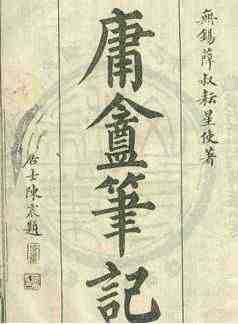 無錫薛叔耘星使著
庸盦筆記
居士陳宸題